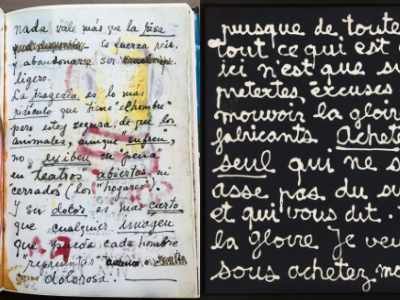 nada vale más que la risa
es fuerza reir,
y abandonarse ser
ligero.
La tragedia es lo más
ridículo que tiene "el hombre"
pero estoy segura, de que los
animales, aunque "sufren",
no exiben su "pena"
en "teatros" abiertos, ni
"cerrados" (los "hogares").
Y su dolor es más cierto
que cualquier imagen
que pueda cada hombre
"representar"
dolorosa.
puisque de toute
tout ce qui est
ici n'est que su
pretextes, excuses
mouvoir la gloire
fabricants. Achetez
seul qui ne s
asse pas du su
et qui vous dit.
la gloire je veu
sous achetez mo